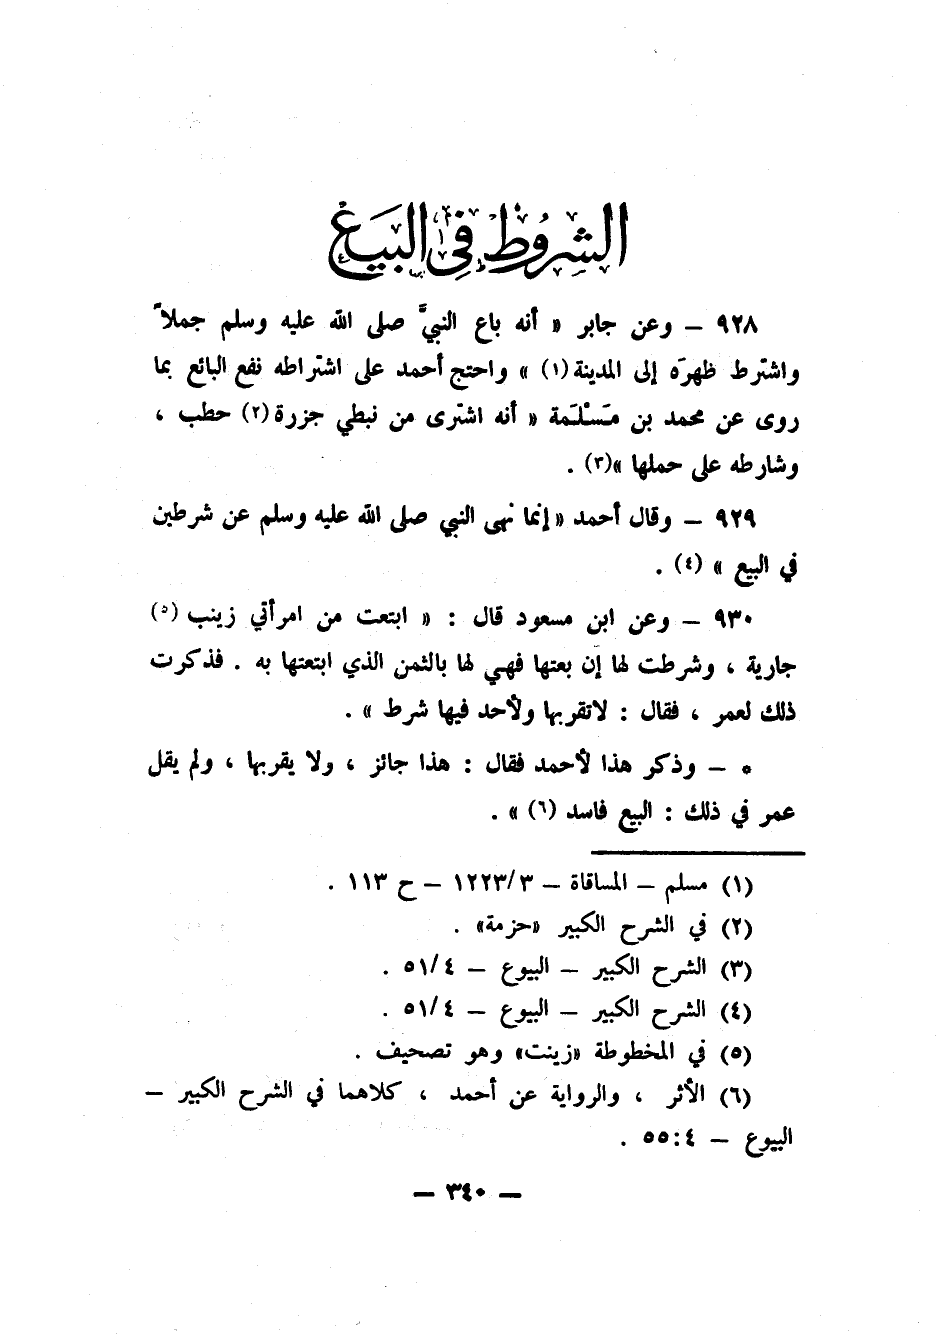 الشروط في البيع
٩٢٨ – وعن جابر « أنه باع النبيَّ صلى الله عليه وسلم جملاً
واشترط ظهرَه إلى المدينة (١) » واحتج أحمد على اشتراطه نفع البائع بما
روى عن محمد بن مَسْلَمة « أنه اشترى من نبطي جزرة (٢) حطب ،
وشارطه على حملها »(٣) .
٩٢٩ – وقال أحمد « إنما نهى النبي صلى الله عليه وسلم عن شرطين
في البيع » (٤) .
٩٣٠ – وعن ابن مسعود قال : « ابتعت من امرأتي زينب (٥)
جارية ، وشرطت لها إن بعتها فهي لها بالثمن الذي ابتعتها به . فذكرت
ذلك لعمر ، فقال : لاتقربها ولأحد فيها شرط » .
* – وذكر هذا لأحمد فقال : هذا جائز ، ولا يقربها ، ولم يقل
عمر في ذلك : البيع فاسد (٦) » .
(١) مسلم – المساقاة – ١٢٢٣/٣ – ح ١١٣ .
(٢) في الشرح الكبير «حزمة» .
(٣) الشرح الكبير – البيوع – ٥١/٤ .
(٤) الشرح الكبير – البيوع – ٥١/٤ .
(٥) في المخطوطة «زينت» وهو تصحيف .
(٦) الأثر ، والرواية عن أحمد ، كلاهما في الشرح الكبير –
البيوع – ٥٥:٤ .
– ٣٤٠ –